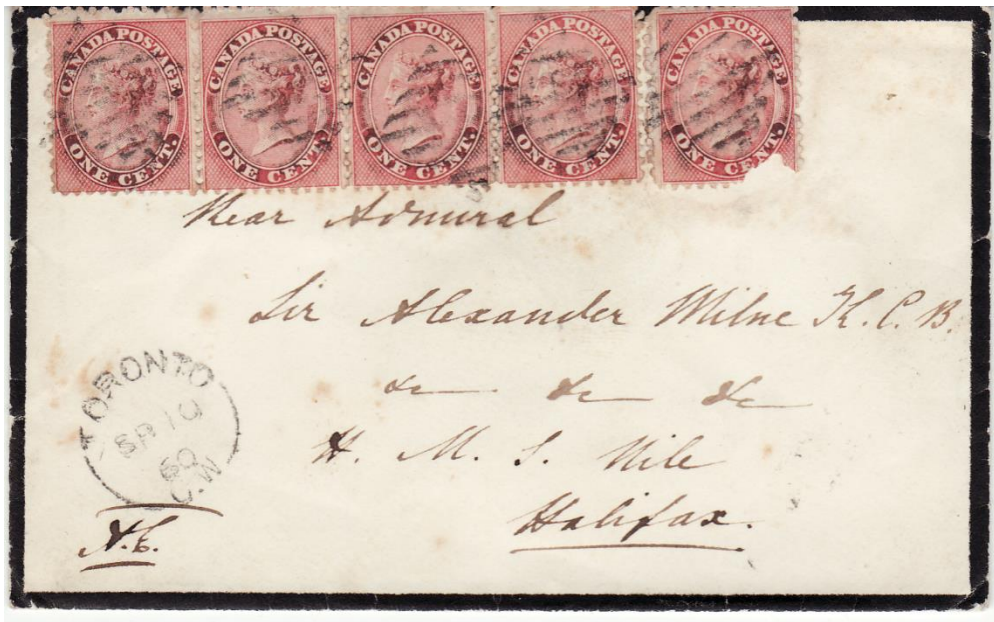 CANADA POSTAGE ONE CENT.
CANADA POSTAGE ONE CENT.
CANADA POSTAGE ONE CENT.
CANADA POSTAGE ONE CENT.
CANADA POSTAGE ONE CENT.
Rear Admiral
Sir Alexander Milne K. C. B.
&c &c &c
H. M. S. Nile
Halifax.
TORONTO
SP 13
60
C.W